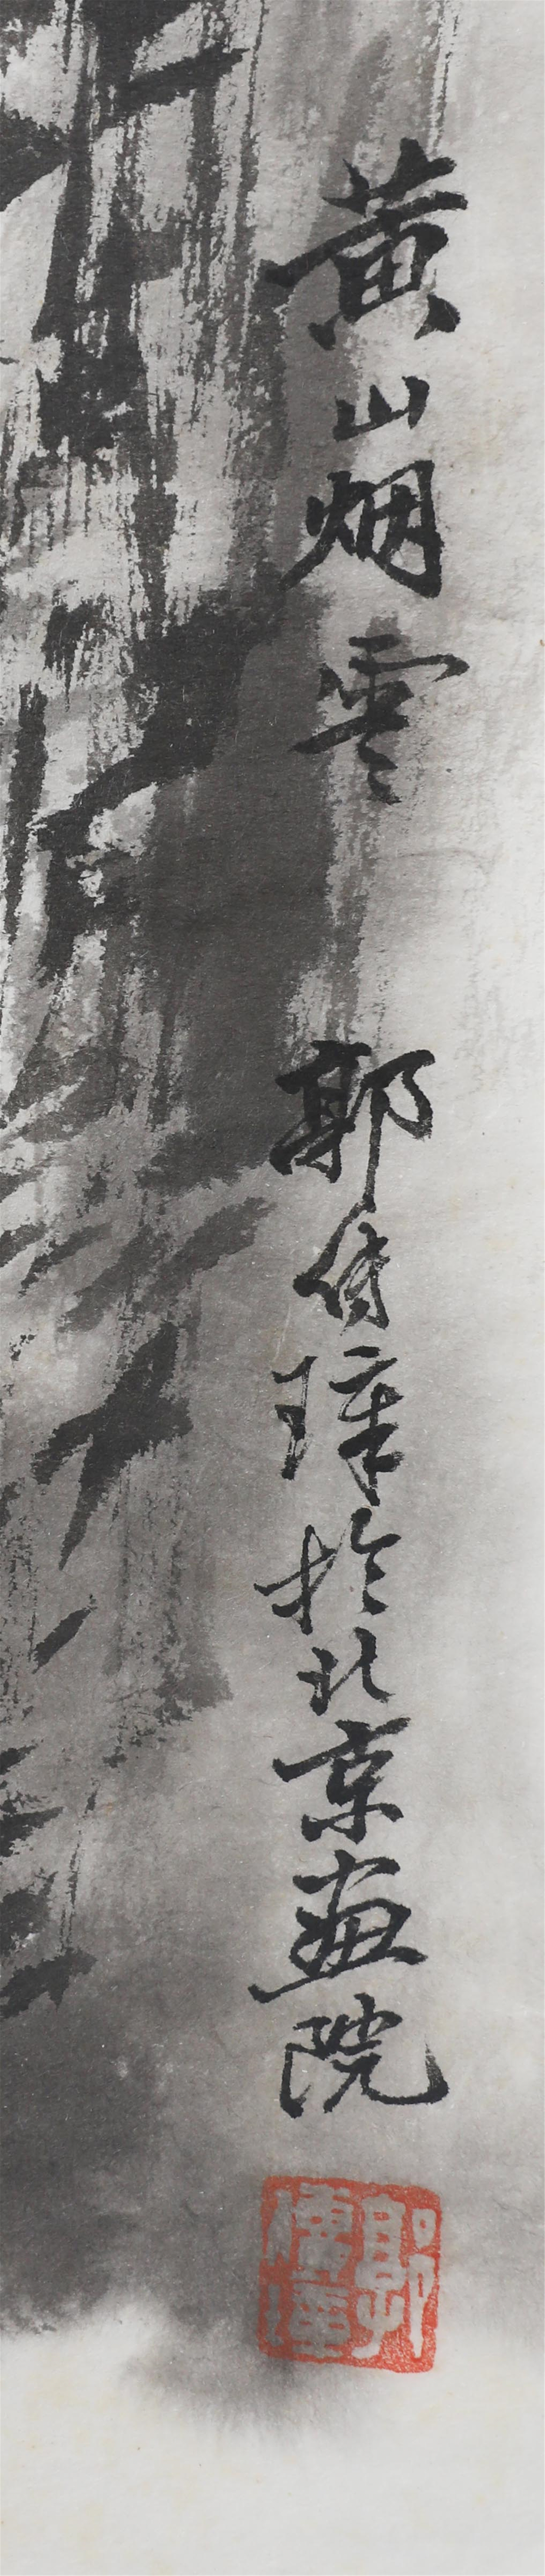 黄山烟雲
郭传璋於北京画院
郭傳璋